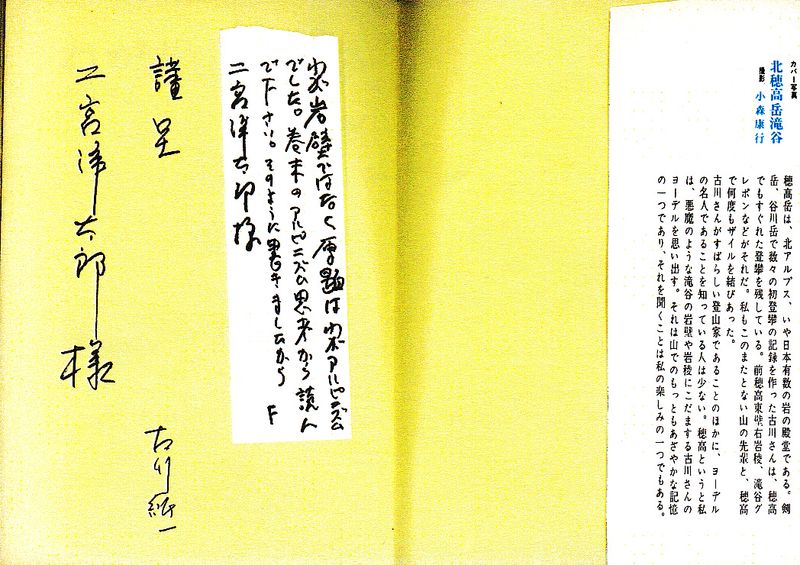 カバー写真
北穂高岳滝谷
撮影 小森康行
穂高岳は、北アルプス、いや日本有数の岩の殿堂である。剣
岳、谷川岳で数々の初登攀の記録を作った古川さんは、穂高
でもすぐれた登攀を残している。前穂高東壁右岩稜、滝谷グ
レポンなどがそれだ。私もこのまたとない山の先輩と、穂高
で何度もザイルを結びあった。
古川さんがすばらしい登山家であることのほかに、ヨーデル
の名人であることを知っている人は少ない。穂高というと私
は、悪魔のような滝谷の岩壁や岩稜にこだまする古川さんの
ヨーデルを思い出す。それは山でのもっともあざやかな記憶
の一つであり、それを聞くことは私の楽しみの一つでもある。
わが岩壁ではなく原題はわがアルピニズム
でした。巻末のアルピニズム思考から読ん
で下さい。そのように書きましたから F
二宮洋太郎様
謹呈
二宮洋太郎様
古川純一